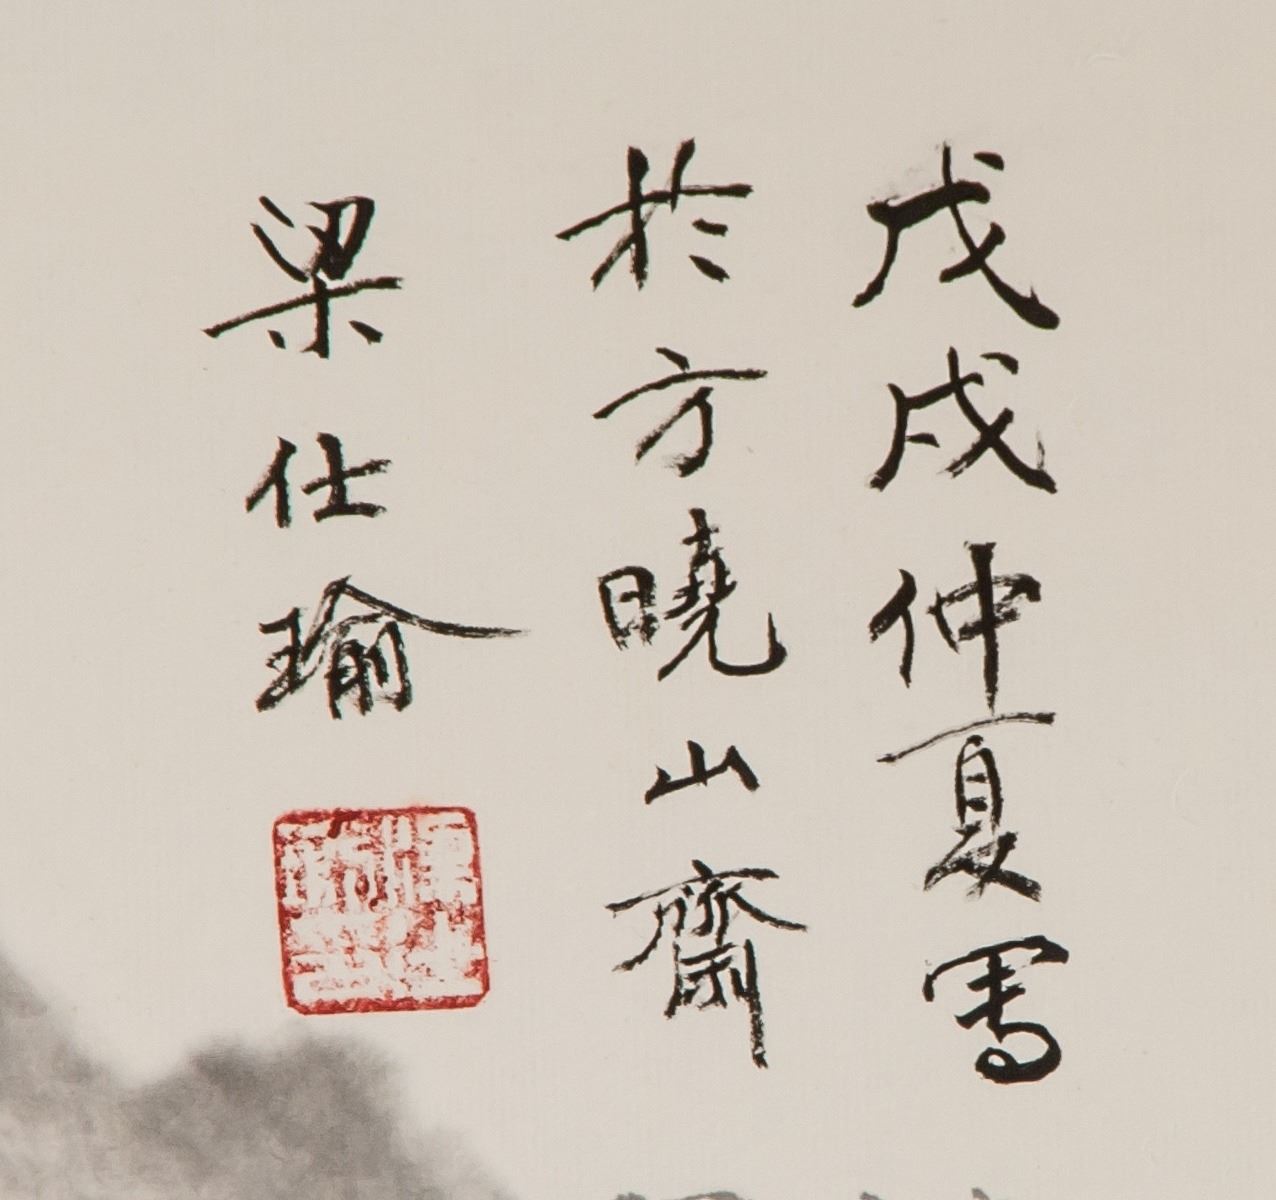 戊戌仲夏寫
於方曉山齋
梁仕瑜